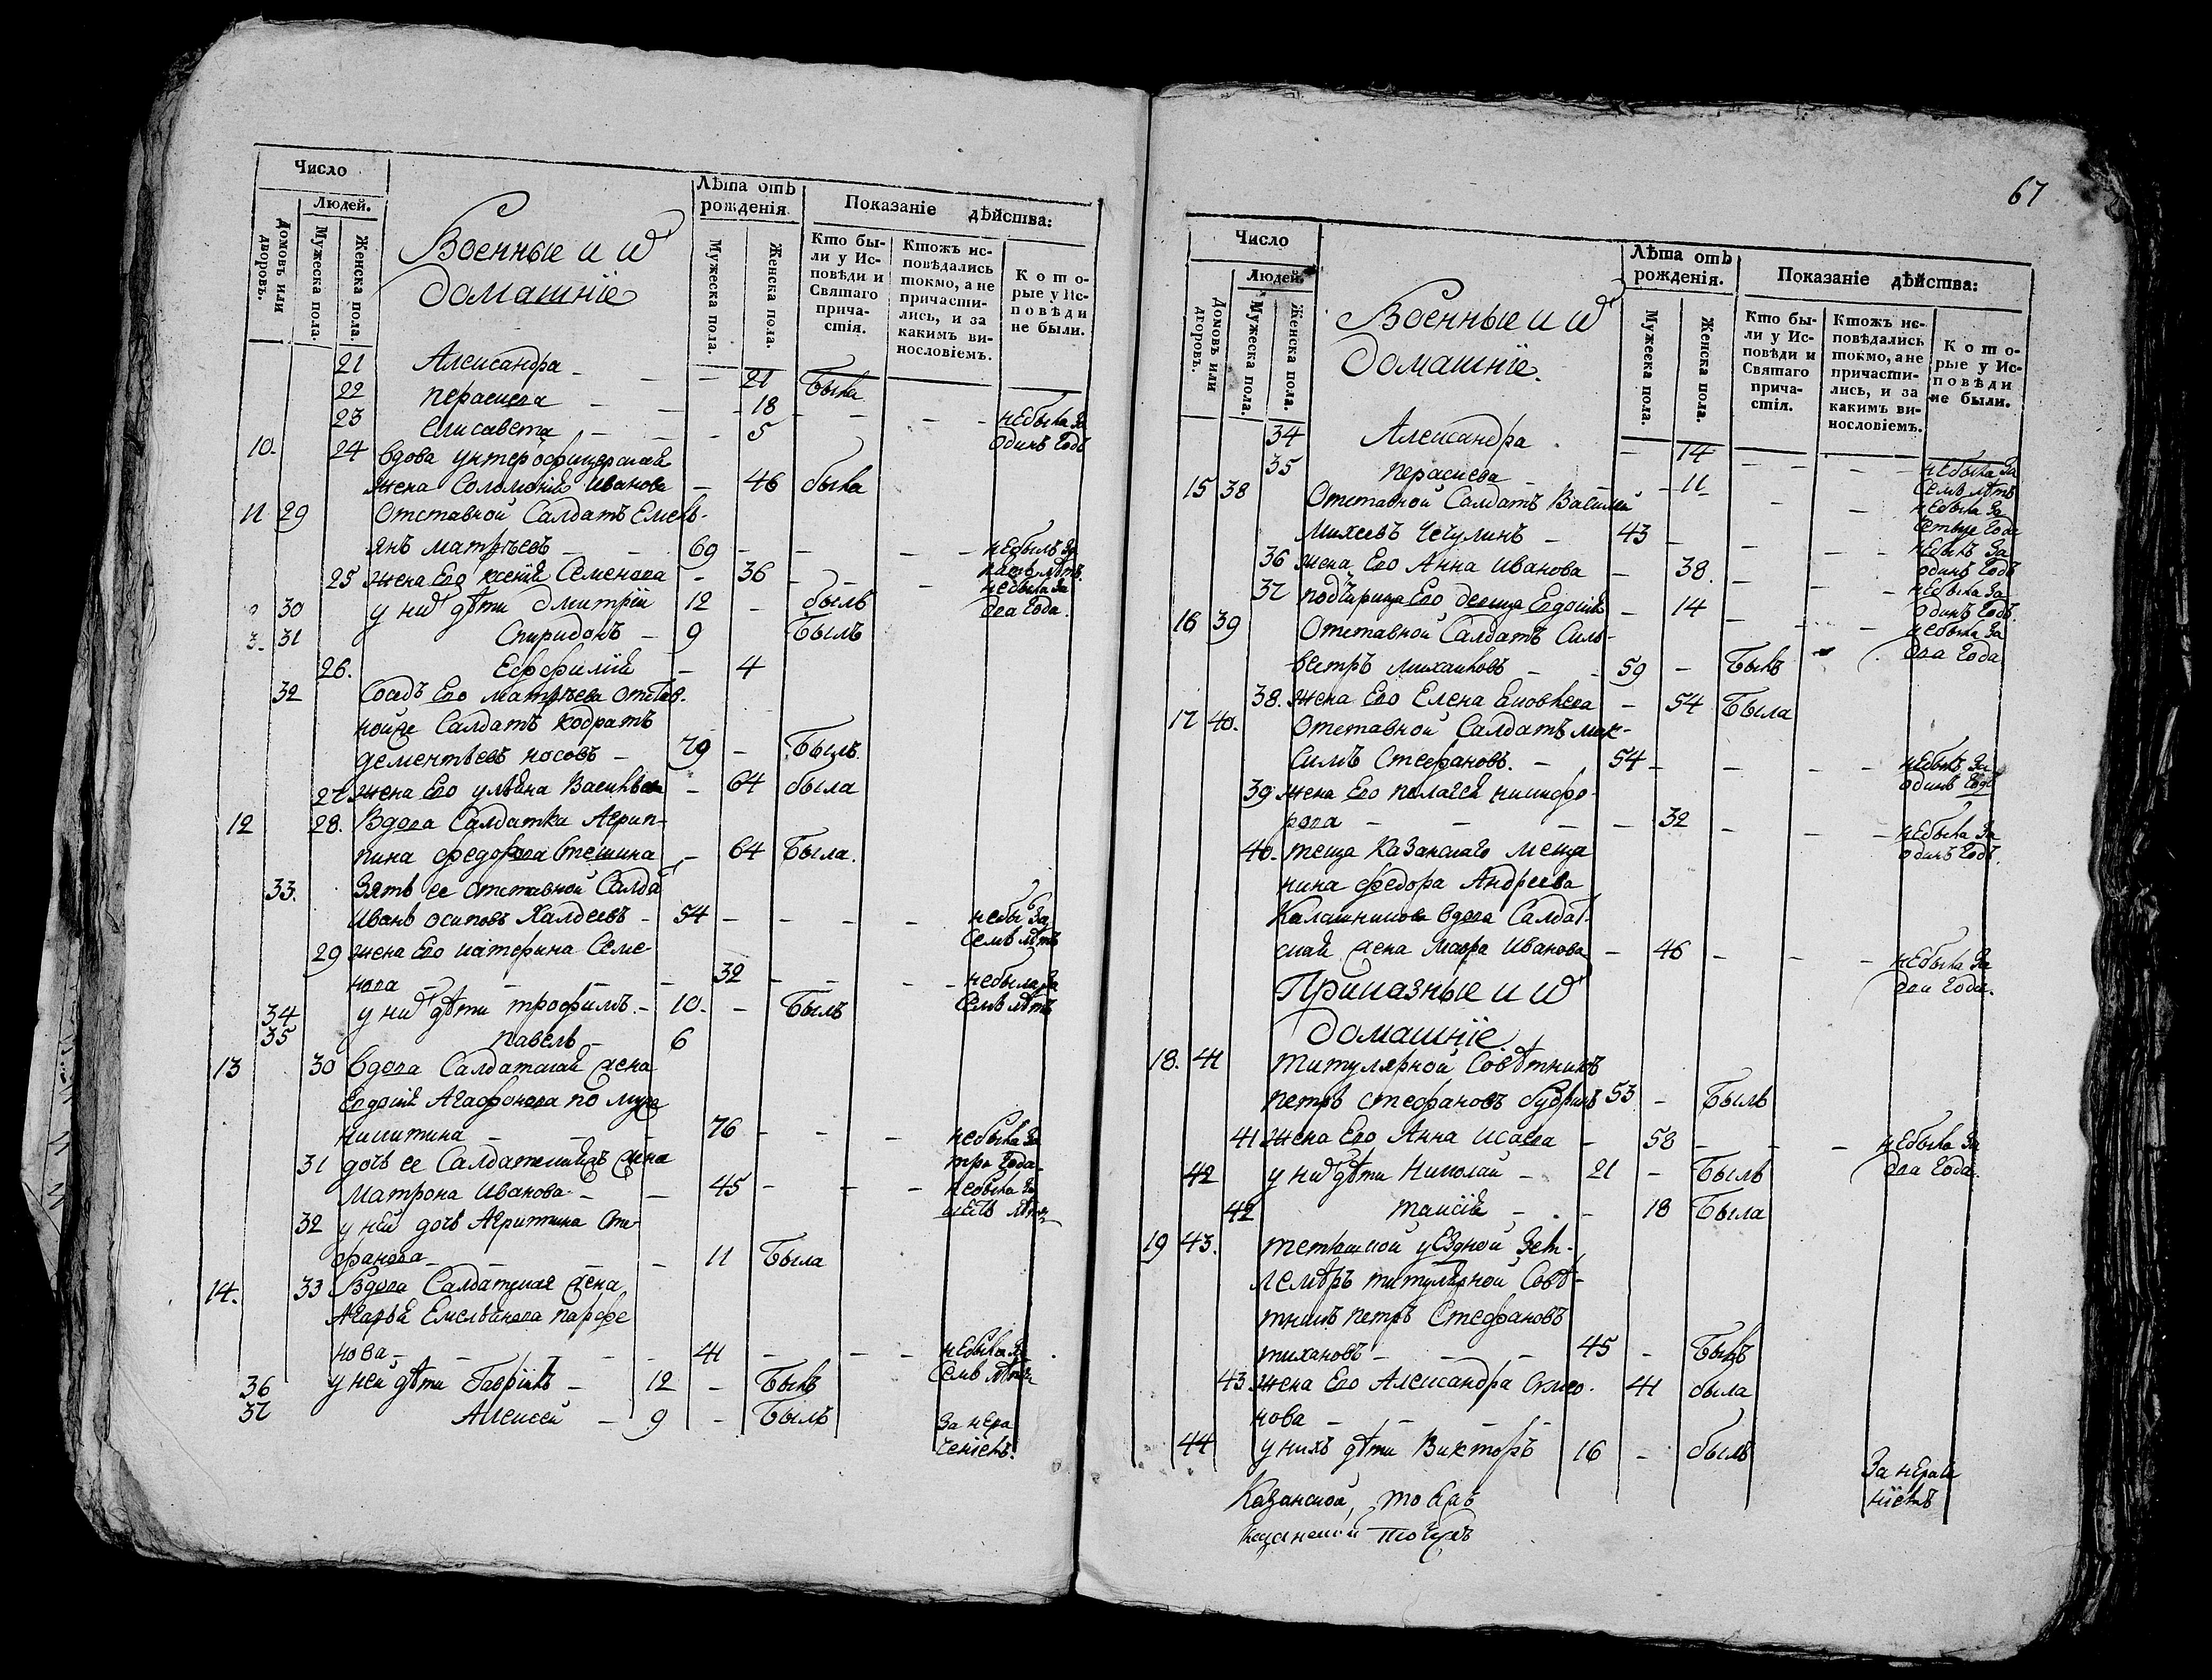 Число
Людей.
Домовъ или дворовъ.
Мужеска пола.
Женска пола.
Военные и ихъ
домашніе
Лѣта отъ рожденія
Мужеска пола.
Женска пола.
Показаніе дѣйства:
Кто были у Исповѣди и Святаго причастія.
Ктожъ исповѣдались токмо, а не причастились, и за какимъ винословіемъ.
Которые у Исповѣди не были.
21 Александра - - - 21 Была
22 Параскева - - - 18 - - - небыла за
23 Елисавета - - - 5 одинъ годъ
10. 24 вдова унтерофицерская
жена Соломонія Иванова - 46 была
11 29 Отставной Салдатъ Емель-
янъ Матвѣевъ - - 69 - - - - небылъ за
25 жена Его Ксенія Семенова - 36 - - - небыла за
30 у них дѣти Дмитрій 12 - былъ два года.
31 Спиридонъ - 9 Былъ
26. Евфимія - 4
32 Сосѣдъ Его Матвѣева отстав-
ной Салдатъ Кодратъ
Дементьевъ Носовъ - 79 - Былъ
27 жена Его Ульяна Васильева - 64 была
12 28. Вдова Салдатка Агрип-
пина Федорова - 64 Была.
33. Зять ее отставной Салда
Иванъ Осиповъ Халдеевъ - 54 - - - - небы за
семь лѣтъ
29 жена Его Катерина Семе
нова - - - 32 - - - небыла за
34 у них дѣти Трофимъ - 10. - Былъ семь лѣтъ
35 Павелъ - 6
13 30 вдова Салдатская жена
Евдокія Агафонова по муже
Никитина - - - 76 - - - небыла за
31 дочь ее Салдатская жена три года
Матрона Иванова - - 45 - - - небыла за
32 у ней дочь Агрипина Сте-
фанова - - - 11 Была
14. 33 Вдова Салдатская жена
Агафья Емельянова Парфе
нова - - - 41 - - - небыла за
36 у ней дѣти Гавріилъ - 12 - Былъ семь лѣтъ
37 Алексей - 9 - Былъ
за нера
ченіемъ.
67
Число
Людей.
Домовъ или дворовъ.
Мужеска пола.
Женска пола.
Военные и ихъ
домашніе.
Лѣта отъ рожденія.
Мужеска пола.
Женска пола.
Показаніе дѣйства:
Кто были у Исповѣди и Святаго причастія.
Ктожъ исповѣдались токмо, а не причастились, и за какимъ винословіемъ.
Которые у Исповѣди не были.
34 Александра - 14 - - - - небыла за
35 Параскева - - 11 - - семь лѣтъ
15 38 Отставной Салдатъ Василий небыла за
Михеевъ Чечулинъ - 43 - - - - небылъ за
36 жена Его Анна Иванова - 38. - - - одинъ годъ
небыла за
37 подчирица Его девица Евдокія - 14 - - - одинъ годъ
16 39 Отставной Салдатъ Силь- небыла за
вестръ Михайловъ - - 59 - Былъ два года
38. жена Его Елена Яковлева - 54 Была
17 40. Отставной Салдатъ Мак-
симъ Стефановъ. - 54 - - - - небылъ за
одинъ годъ
39 жена Его Пелагея Никифо-
рова - - - - 32 - - - небыла за
40. теща Казанскаго меща одинъ годъ.
нина Федора Андреева
Калашникова вдова Салдат-
ская жена Мавра Иванова - 46 - - - небыла за
два года.
Приказные и ихъ
домашніе.
18. 41 Титулярной Совѣтникъ
Петръ Стефановъ 53 - Былъ
41 жена Его Анна Исаева - 58 - - - небыла за
42 у них дѣти Николай - 21 - Былъ два года.
42 Таисія - - - 18 Была
19 43. Тетюшской уѣздной Зем-
лемѣръ титулярной Совѣ-
тникъ Петръ Стефановъ
Тихановъ - - - 45 - Былъ
43 жена Его Александра Семо- 41 была
нова - - -
44 у нихъ дѣти Викторъ 16 - былъ
За нераче
ніемъ
Казанской,
Казанской